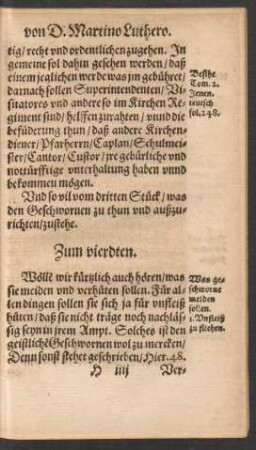 von D. Martino Luthero.
tig/ recht vnd ordentlichen zugehen. In
gemeine sol dahin gesehen werden/ daß
einem jeglichen werde was jm gebühret/
darnach sollen Superintendenten/ Vi-
sitatores vnd andere so im Kirchen Re-
giment sind/ helffen zurahten/ vnnd die
befüderung thun/ daß andere Kirchen-
diener/ Pfarherrn/ Caplan/ Schulmei-
ster/ Cantor/ Custor/ jre gebürliche vnd
notturfftige vnterhaltung haben vnnd
bekommen mögen.
Besihe
Tom. 2.
Jenen.
teutsch
fol. 248.
Vnd so vil vom dritten Stück/ was
den Geschwornen zu thun vnd außzu-
richten/ zustehe.
Zum vierdten.
Wölle wir kürtzlich auch hören/ was
sie meiden vnd verhüten sollen. Für al-
len dingen sollen sie sich ja für vnfleiß
hüten/ daß sie nicht träge noch nachläs-
sig seyn in jrem Ampt. Solches ist den
geistlichē Geschwornen wol zu mercken/
Denn sonst stehet geschrieben/ Hier. 48.
Was ge-
schworne
meiden
sollen.
1. Vnfleiß
zu fliehen.
H iiij Ver-